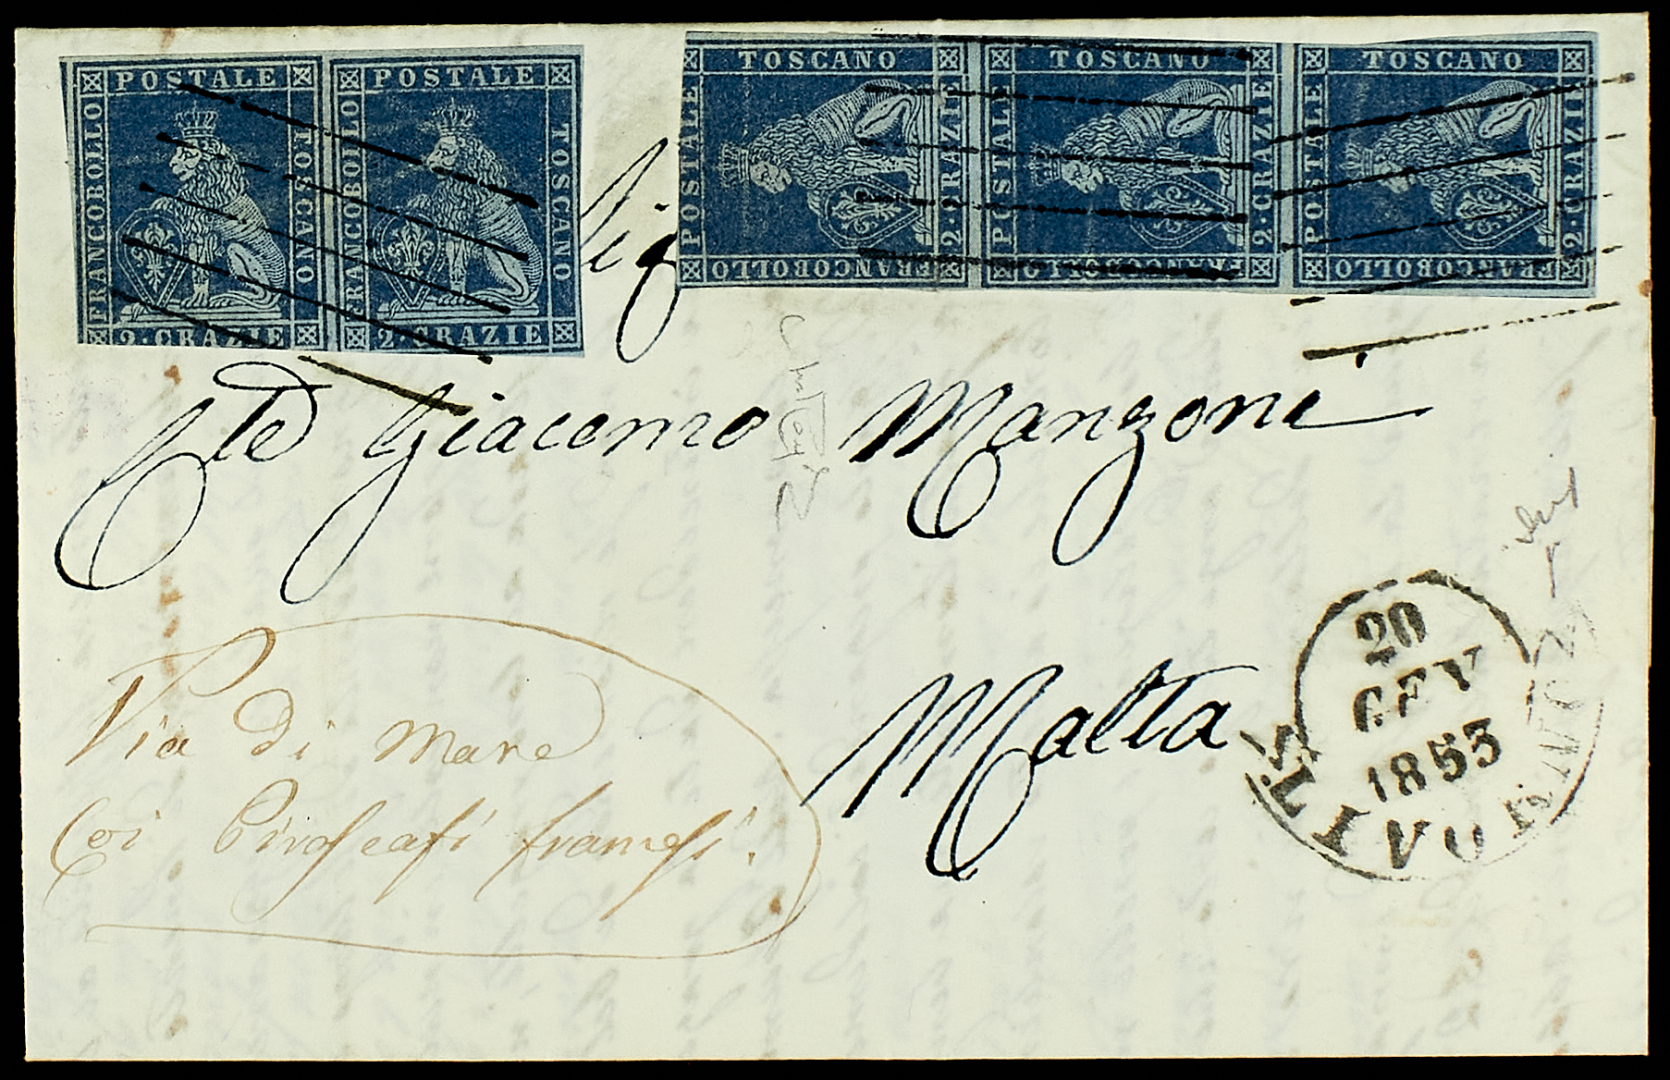 POSTALE POSTALE
FRANCOBOLLO TOSCANO FRANCOBOLLO TOSCANO
2·CRAZIE 2·CRAZIE
TOSCANO TOSCANO TOSCANO
POSTALE 2·CRAZIE POSTALE 2·CRAZIE POSTALE 2·CRAZIE
FRANCOBOLLO FRANCOBOLLO FRANCOBOLLO
Sig
Cte Giacomo Manzoni
Malta
Via di mare
coi Piroscafi francesi.
20
GEN
1853